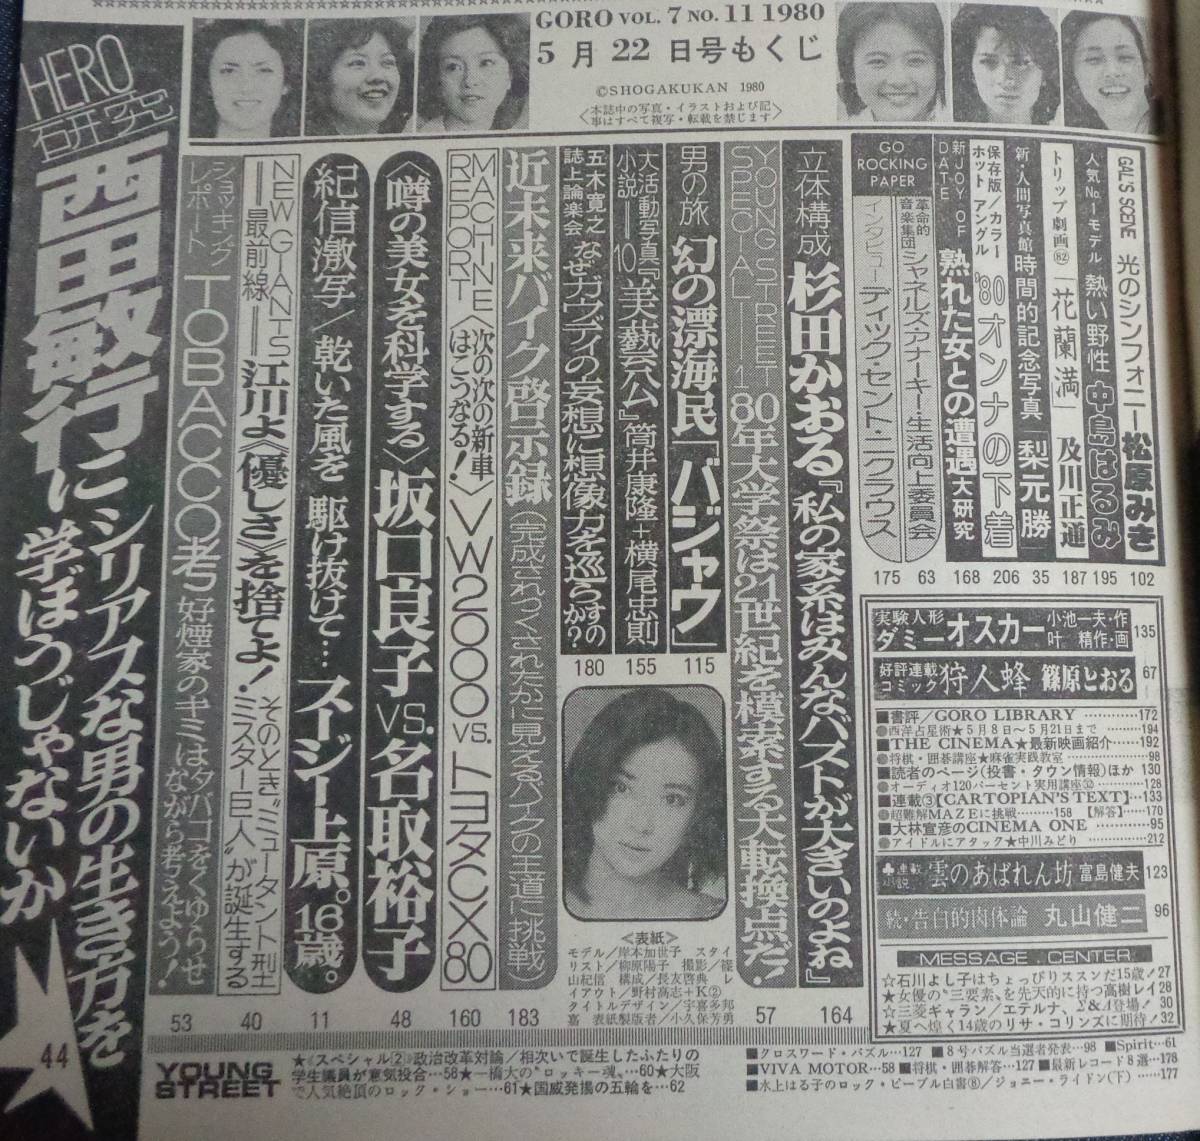 GORO VOL. 7 NO. 11 1980
5月22日号もくじ
©SHOGAKUKAN 1980
〈本誌中の写真・イラストおよび記
事はすべて複写・転載を禁じます〉
GAL'S SCENE 光のシンフォニー 松原みき
102
人気No.1モデル 熱い野性 中島はるみ
195
トリップ劇画(82) 花蘭満 及川正通
187
新・人間写真館 時間的記念写真「梨元勝」
35
保存版/カラー
ホットアングル '80オンナの下着
206
新JOY OF
DATE 熟れた女との遭遇大研究
168
GO
ROCKING
PAPER
革命的
音楽集団 シャネルズ・アナーキー・生活向上委員会
63
インタビュー ディック・セント・ニクラウス
175
立体構成 杉田かおる「私の家系はみんなバストが大きいのよね」
164
YOUNG STREET
SPECIAL―1 80年大学祭は21世紀を模索する大転換点だ!
57
男の旅 幻の漂海民「バジャウ」
115
大活動写真
小説―10『美藝公』筒井康隆+横尾忠則
155
五木寛之
誌上論楽会 なぜガウディの妄想に想像力を巡らすのか?
180
近未来バイク啓示録(完成されつくされたかに見えるバイクの王道に挑戦)
183
MACHINE
REPORT〈次の次の新車はこうなる!〉VW2000 vs. トヨタCX80
160
〈噂の美女を科学する〉坂口良子 VS. 名取裕子
48
紀信激写/乾いた風を駆け抜けて… スージー上原。16歳。
11
NEW GIANTS
―最前線― 江川よ《優しさ》を捨てよ! そのとき“ミュータント型ミスター巨人”が誕生する
40
ショッキング
レポート TOBACCO考 好煙家のキミはタバコをくゆらせながら考えよう!
53
HERO
研究
西田敏行に学ぼうじゃないか
シリアスな男の生き方を
44
実験人形
ダミーオスカー 小池一夫・作
叶精作・画 135
好評連載
コミック 狩人蜂 篠原とおる 67
■書評/GORO LIBRARY…………172
●西洋占星術★5月8日〜5月21日まで…194
■THE CINEMA★最新映画紹介……192
●将棋・囲碁講座★麻雀実践教室……98
■読者のページ(投書・タウン情報)ほか 130
●オーディオ120パーセント実用講座㉜…128
■連載③【CARTOPIAN'S TEXT】…133
●超難解MAZEに挑戦……158【解答】…170
■大林宣彦のCINEMA ONE………95
●アイドルにアタック★中川みどり……212
♣連載
小説 雲のあばれん坊 富島健夫 123
続・告白的肉体論 丸山健二 96
MESSAGE CENTER
☆石川よし子はちょっぴりススンだ15歳!27
★女優の“三要素”を先天的に持つ高樹レイ28
☆三菱ギャラン/エテルナ、Σ&Λ登場!30
★夏へ煌く14歳のリサ・コリンズに期待!32
〈表紙〉
モデル/岸本加世子 スタイ
リスト/柳原陽子 撮影/篠
山紀信 構成/長友啓典 レ
イアウト/野村高志+K②
タイトルデザイン/宇喜多邦
嘉 表紙製版者/小久保芳勇
YOUNG
STREET
★《スペシャル②》政治改革対論/相次いで誕生したふたりの
学生議員が意気投合…58★一橋大の“ロッキー魂”…60★大阪
で人気絶頂のロック・ショー…61★国威発揚の五輪を…62
■クロスワード・パズル…127 ■8号パズル当選者発表…98 ■Spirit…61
■VIVA MOTOR…58 ■将棋・囲碁解答…127 ■最新レコード8選…178
■水上はる子のロック・ピープル白書⑧/ジョニー・ライドン(下)…177